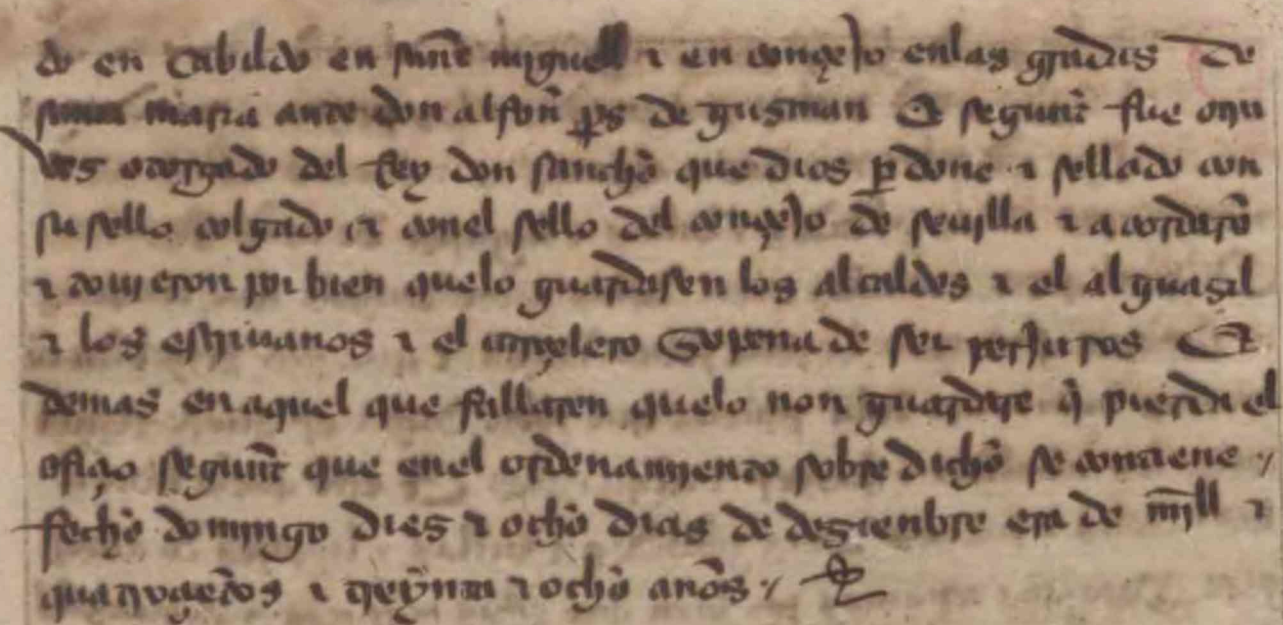 do en cabildo en sant miguell τ en conçejo enlas gradas de
santa maria ante don alfon̄ ꝑs de gusman Et segunt fue otra
ves otorgado del rey don sancho que dios ꝑdone τ sellado con
su sello colgado τ conel sello del conçejo de seuilla τ acordarō
τ touieron por bien quelo guardasen los alcaldes τ el alguasil
τ los escriuanos τ el carçelero Sopena de ser perjuros Et
demas enaquel que fallaren quelo non guardare q̄ pierda el
ofiçio segunt que enel ordenamiento sobre dicho se contiene ·/
fecho domingo dies τ ocho dias de desienbre era de mill τ
quatroçētos τ treynta τ ocho anōs ·/